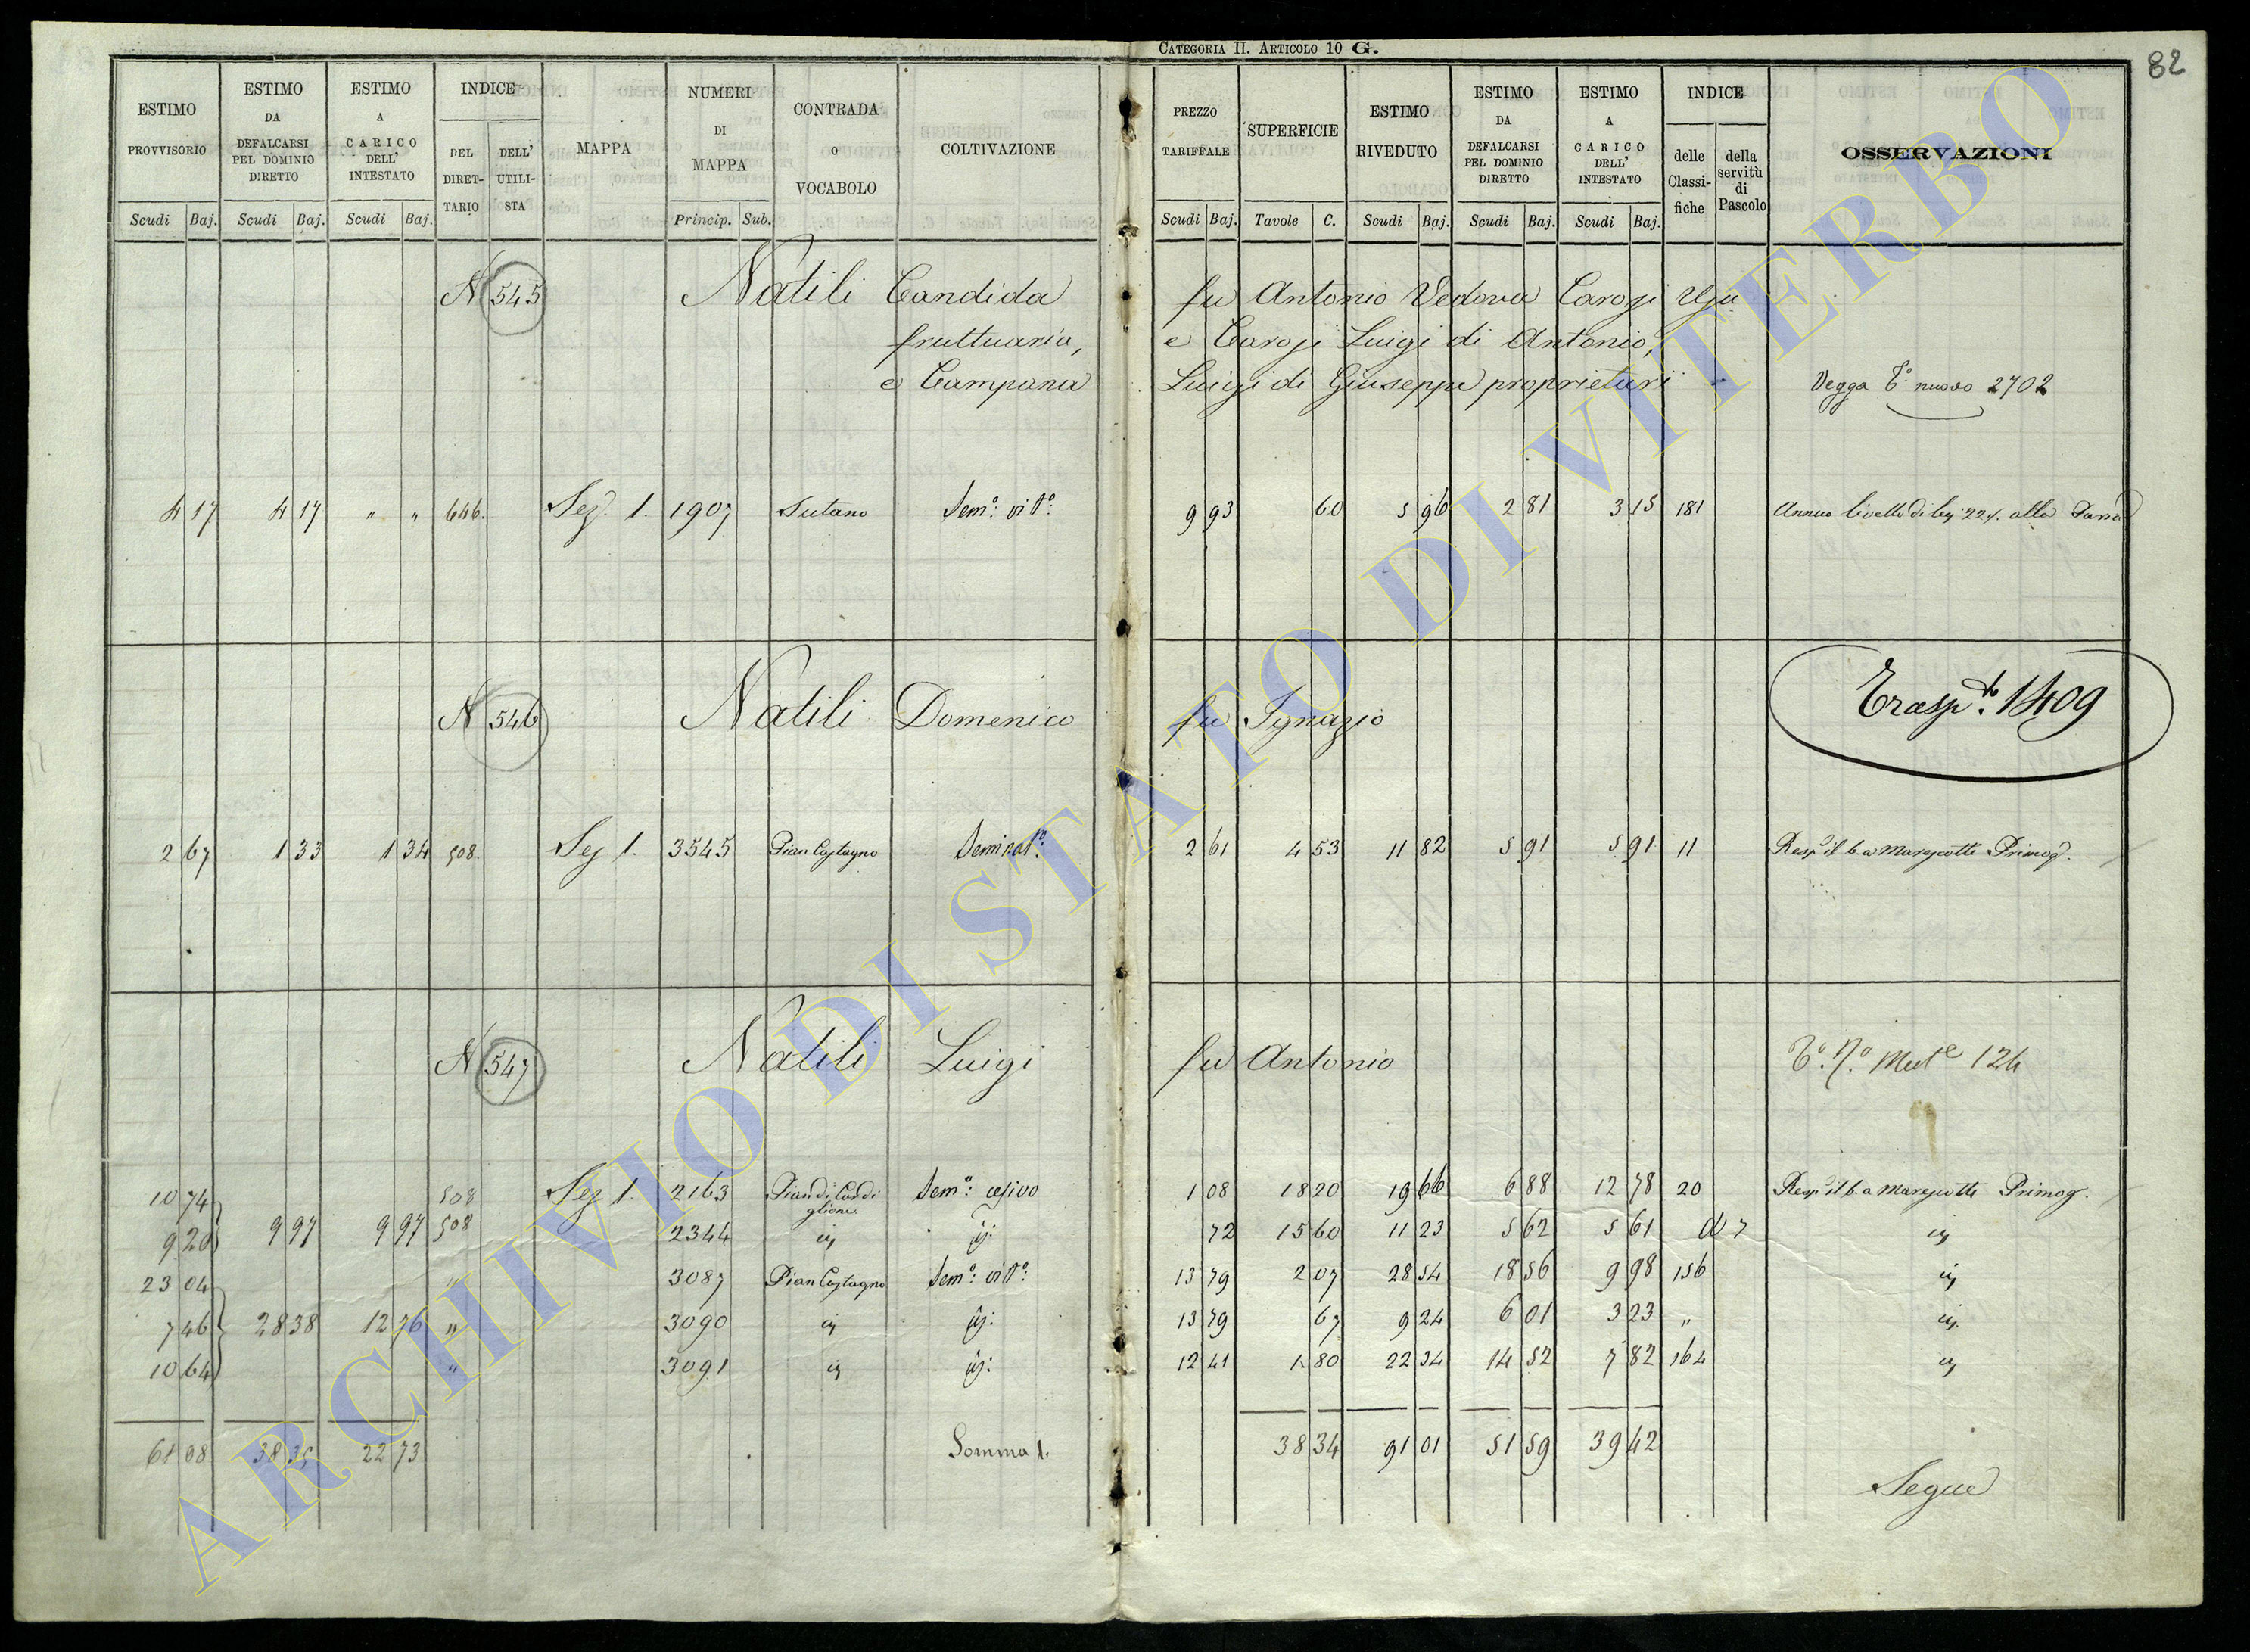 CATEGORIA II. ARTICOLO 10 G.
82
ESTIMO PROVVISORIO Scudi Baj.
ESTIMO DA DEFALCARSI PEL DOMINIO DIRETTO Scudi Baj.
ESTIMO A CARICO DELL' INTESTATO Scudi Baj.
INDICE DEL DIRETTARIO DELL' UTILISTA
MAPPA
NUMERI DI MAPPA Princip. Sub.
CONTRADA O VOCABOLO
COLTIVAZIONE
PREZZO TARIFFALE Scudi Baj.
SUPERFICIE Tavole C.
ESTIMO RIVEDUTO Scudi Baj.
ESTIMO DA DEFALCARSI PEL DOMINIO DIRETTO Scudi Baj.
ESTIMO A CARICO DELL' INTESTATO Scudi Baj.
INDICE delle Classifiche della servitù di Pascolo
OSSERVAZIONI
N 545 Natili Candida fu Antonio Vedova Carosi Usu
fruttuaria, e Carosi Luigi di Antonio,
e Campana Luigi di Giuseppe proprietari Vegga T.° nuovo 2702
4 17 4 17 " " 646. Sez. 1. 1907 Sutano Sem.° vit.° 9 93 60 5 96 2 81 3 15 181 Annuo livello di
N 546 Natili Domenico fu Ignazio Trasp.to 1409
2 67 1 33 1 34 508. Sez 1. 3545 Pian Castagno Seminat.° 2 61 4 53 11 82 5 91 5 91 11 Resp. il 6.a Marescotti Primog.
N 547 Natili Luigi fu Antonio T.° N.° Mut.e 124
10 74 508 Sez 1. 2163 Piandi Cardiglione Sem.° cesivo 1 08 18 20 19 66 6 88 12 78 20 Resp. il 6.a Marescotti Primog.
9 20 9 97 9 97 508 2344 72 15 60 11 23 5 62 5 61 d 7
23 04 " 3087 Pian Castagno Sem.° vit.° 13 79 2 07 28 54 18 56 9 98 156
7 46 28 38 12 76 " 3090 13 79 67 9 24 6 01 3 23 "
10 64 " 3091 12 41 1 80 22 34 14 52 7 82 164
61 08 38 35 22 73 Somma 1. 38 34 91 01 51 59 39 42
Segue
ARCHIVIO DI STATO DI VITERBO